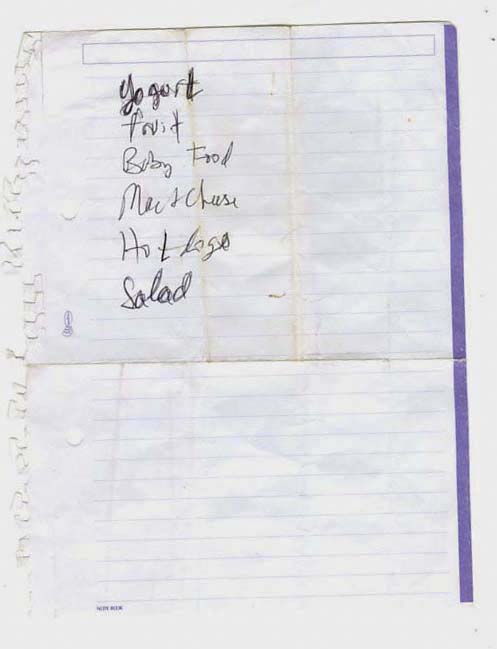 Yogurt
fruit
Baby Food
Mac + Cheese
Hot dogs
Salad
NOTE BOOK